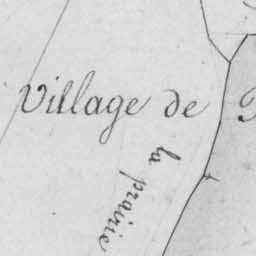 Village de
la prairie